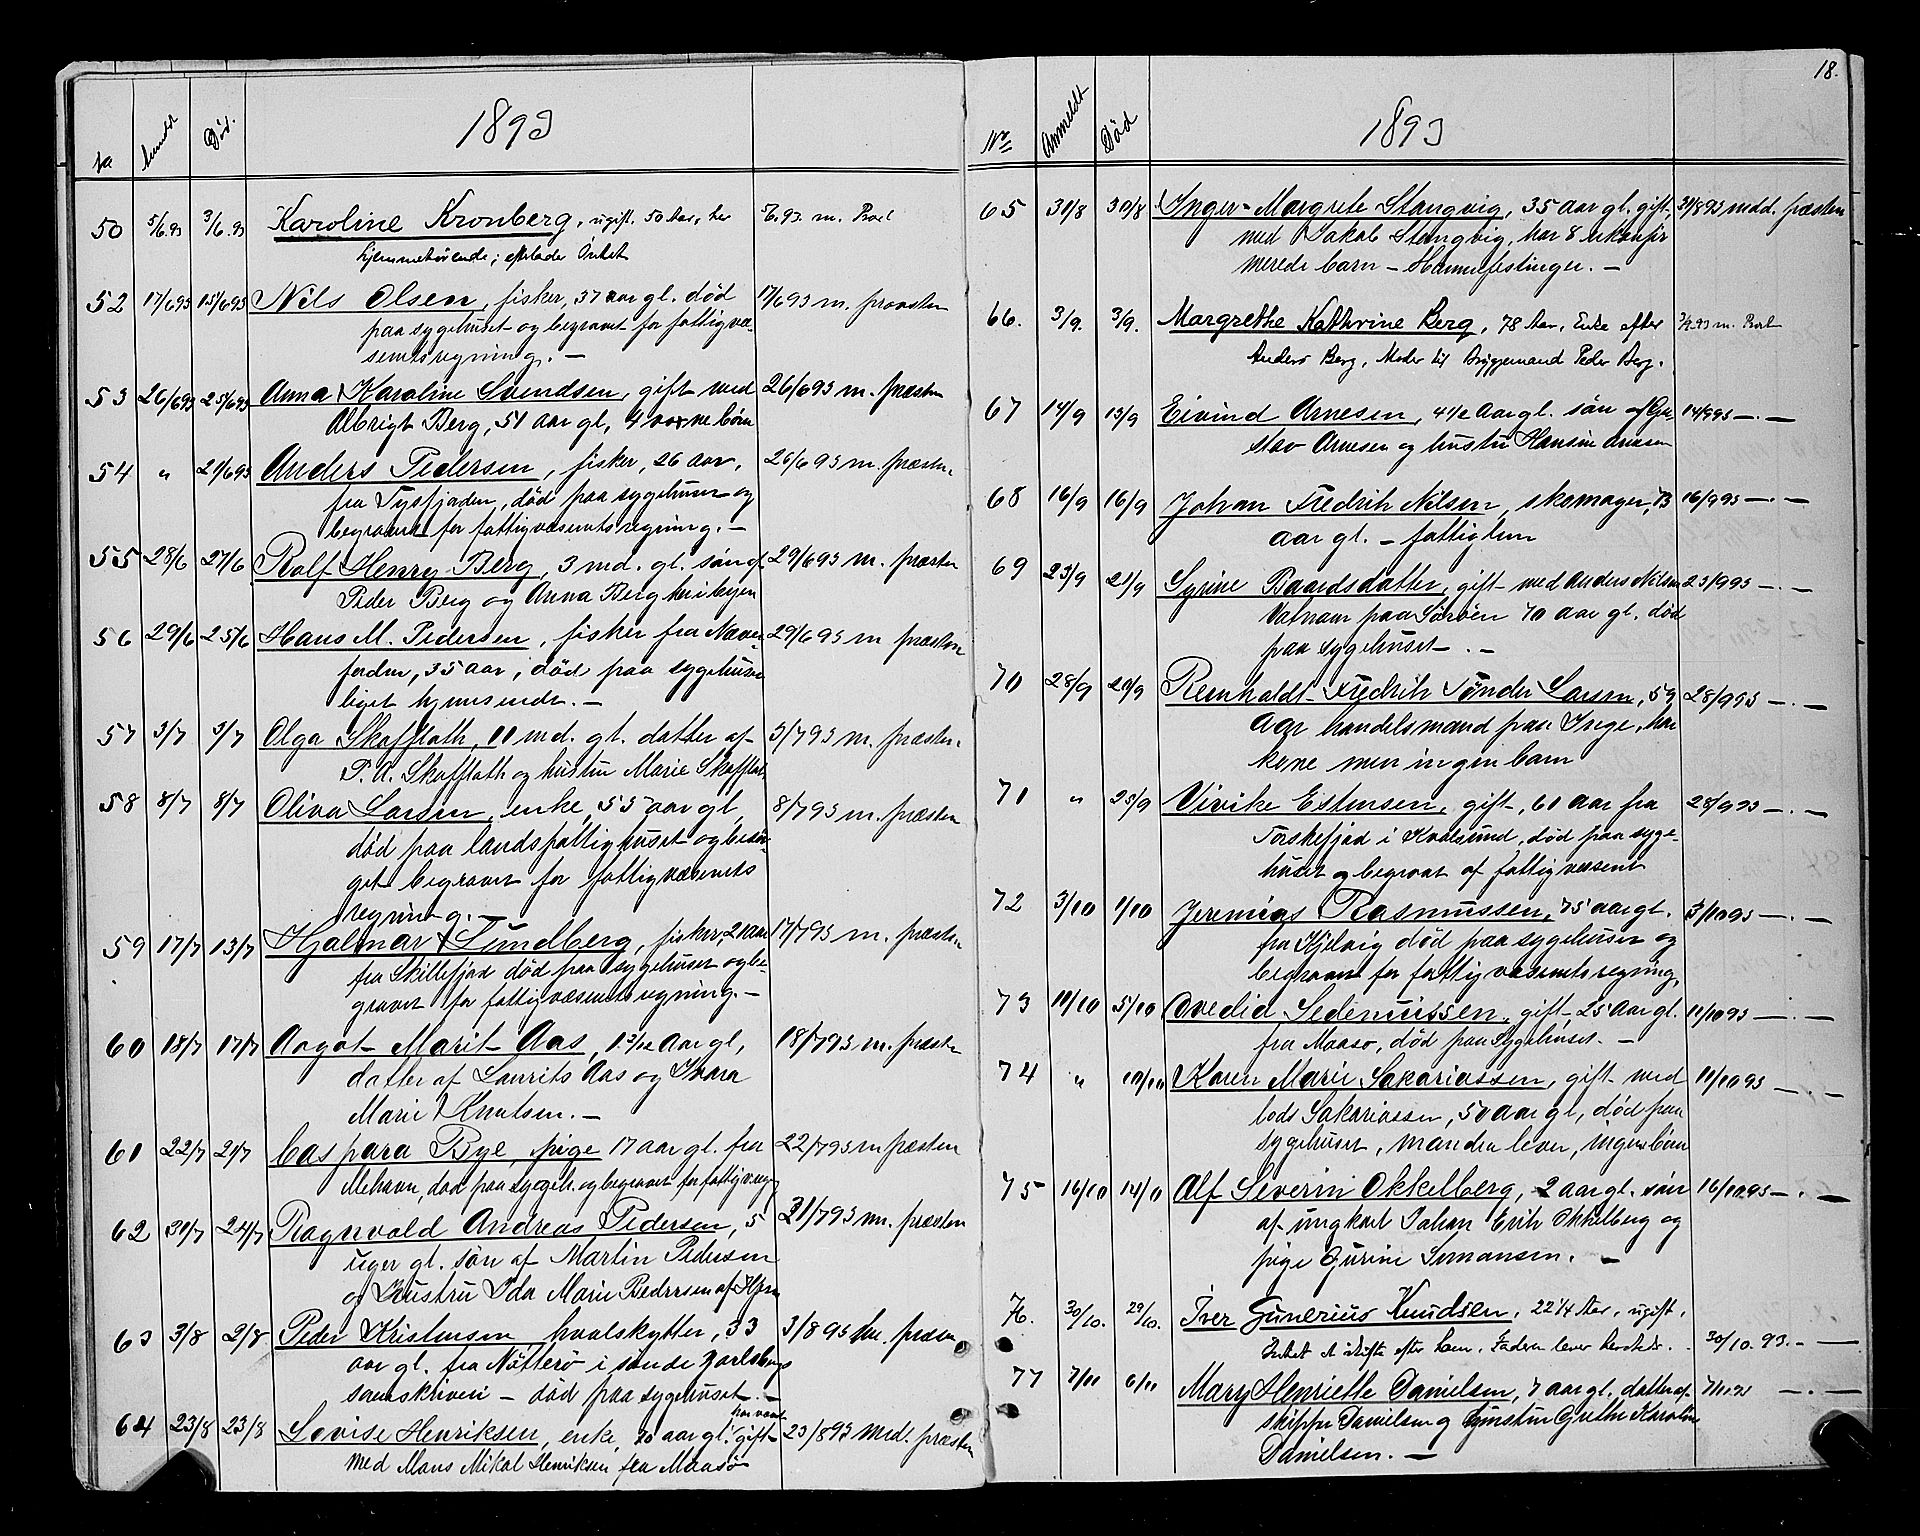 1893
No Anmeldt Død.
50 5/6.93 3/6.93 Karoline Kronberg, ugift, 50 Aar, her 5/6.93. m.
hjemmehørende; efterlader Intet
52 17/693 15/693 Nils Olsen, fisker, 37 aar gl. død 17/693 m. præsten
paa sygehuset og begravet for fattigvæ-
senets regning. —
53 26/693 25/693 Anna Karoline Svendsen, gift med 26/693 m. præsten
Albrigt Berg, 51 aar gl, 4 voxne börn
54 " 21/693 Anders Pedersen, fisker, 26 aar, 26/693 m. præsten
fra Tysfjorden, død paa sygehuset og
begravet for fattigvæsenets regning. —
55 28/6 27/6 Rolf Henry Berg, 3 md. gl. sön af 29/693 m. præsten
Peder Berg og Anna Berg her i byen
56 29/6 25/6 Hans M. Pedersen, fisker fra Næver- 29/693 m præsten
fjorden, 35 aar, död paa sygehuset
liget hjemsendt. —
57 3/7 3/7 Olga Skaflloth, 11 md. gl. datter af 3/793 m. præsten
P. A. Skaflloth og hustru Marie Skaflloth
58 8/7 8/7 Oliva Larsen, enke, 55 aar gl, 8/793 m. præsten
död paa landsfattighuset og besör-
get begravet for fattigvæsenets
regning. —
59 17/7 13/7 Hjalmar Lundberg, fisker, 21 aar 17/793 m. præsten
fra Skillefjord död paa sygehuset og be-
gravet for fattigvæsenets regning. —
60 18/7 17/7 Aagot Marit Aas, 1 3/12 aar gl, 18/793 m. præsten
datter af Laurits Aas og
Marie Knutsen. —
61 22/7 21/7 Caspara Bye, pige 17 aar gl. fra 22/793 m præsten
Mehavn, død paa sygeh. og begravet for fattigv. regn
62 31/7 24/7 Ragnvald Andreas Pedersen, 5 31/793 m. præsten
uger gl. sön af Martin Pedersen
og Hustru Ida Marie Pedersen af Hjem
63 3/8 2/8 Peder Kristensen hvalskytter, 33 3/893 m. præsten
aar gl. fra Nötterö i söndre Jarlsbergs
sorenskriveri — död paa sygehuset. —
64 23/8 23/8 Lovise Henriksen, enke, 70 aar gl. har været gift 23/893 md. præsten
med Mons Mikal Henriksen fra Maasö
18.
1893
No Anmeldt Död
65 31/8 30/8 Inger-Margrete Stangvig, 35 aar gl. gift 31/893 md. præsten
med Jakob Stangvig, har 8 ukonfir
merede barn — Hammerfestinger. —
66. 3/9. 3/9. Margrethe Kathrine Berg, 78 Aar, Enke efter 3/9.93 m.
Anders Berg, Moder til Bryggemand Peder Berg.
67 14/9 13/9 Eivind Arnesen, 4 1/2 aar gl. sön af Gu- 14/993 —.—
stav Arnesen og hustru Hansine Arnesen
68 16/9 16/9 Johan Fredrik Nilsen, skomager, 16/993 —.—
aar gl. — fattiglem
69 23/9 21/9 Syrine Baardsdatter, gift med Anders Nilsen 23/993 —.—
Vatnavn paa Sörøen 70 aar gl. død
paa sygehuset —.—
70 28/9 20/9 Reinholdt Fredrik Tönder Larsen, 59 28/993 —.—
Aar handelsmand paa Ingø, har
kone men ingen barn
71 " 25/9 Vivike Estensen, gift, 61 aar fra 28/993 —.—
Torskefjord i Kvalsund, død paa syge-
huset og begravet af fattigvæsenet
72 3/10 1/10 Jeremias Rasmussen, 75 aar gl. 3/1093 —.—
fra Kjelvig död paa sygehuset og
begravet for fattigvæsenets regning,
73 11/10 5/10 Ovedia Sedeniussen, gift 25 aar gl. 11/1093 —.—
fra Maasø, död paa Sygehuset. —
74 " 10/10 Karen Marie Sakariassen, gift med 11/1093 —.—
Sakariassen, 50 aar gl, død paa
sygehuset, manden lever, ingen börn
75 16/10 14/10 Alf Severin Okkelberg, 2 aar gl. sön 16/1093 —.—
af ungkarl Johan Erik Okkelberg og
pige Gurine Simonsen. —
76. 30/10. 29/10. Iver Gunerius Knudsen, 22 1/4 Aar, ugift,
Intet at skifte efter ham. Faderen lever herstedet. 30/10.93. —.—
77 7/11 6/11 Mary Henriette Danielsen, 7 aar gl. datter af 7/11 93 —.—
skipper Danielsen og hustru Grethe Karoline
Danielsen. —